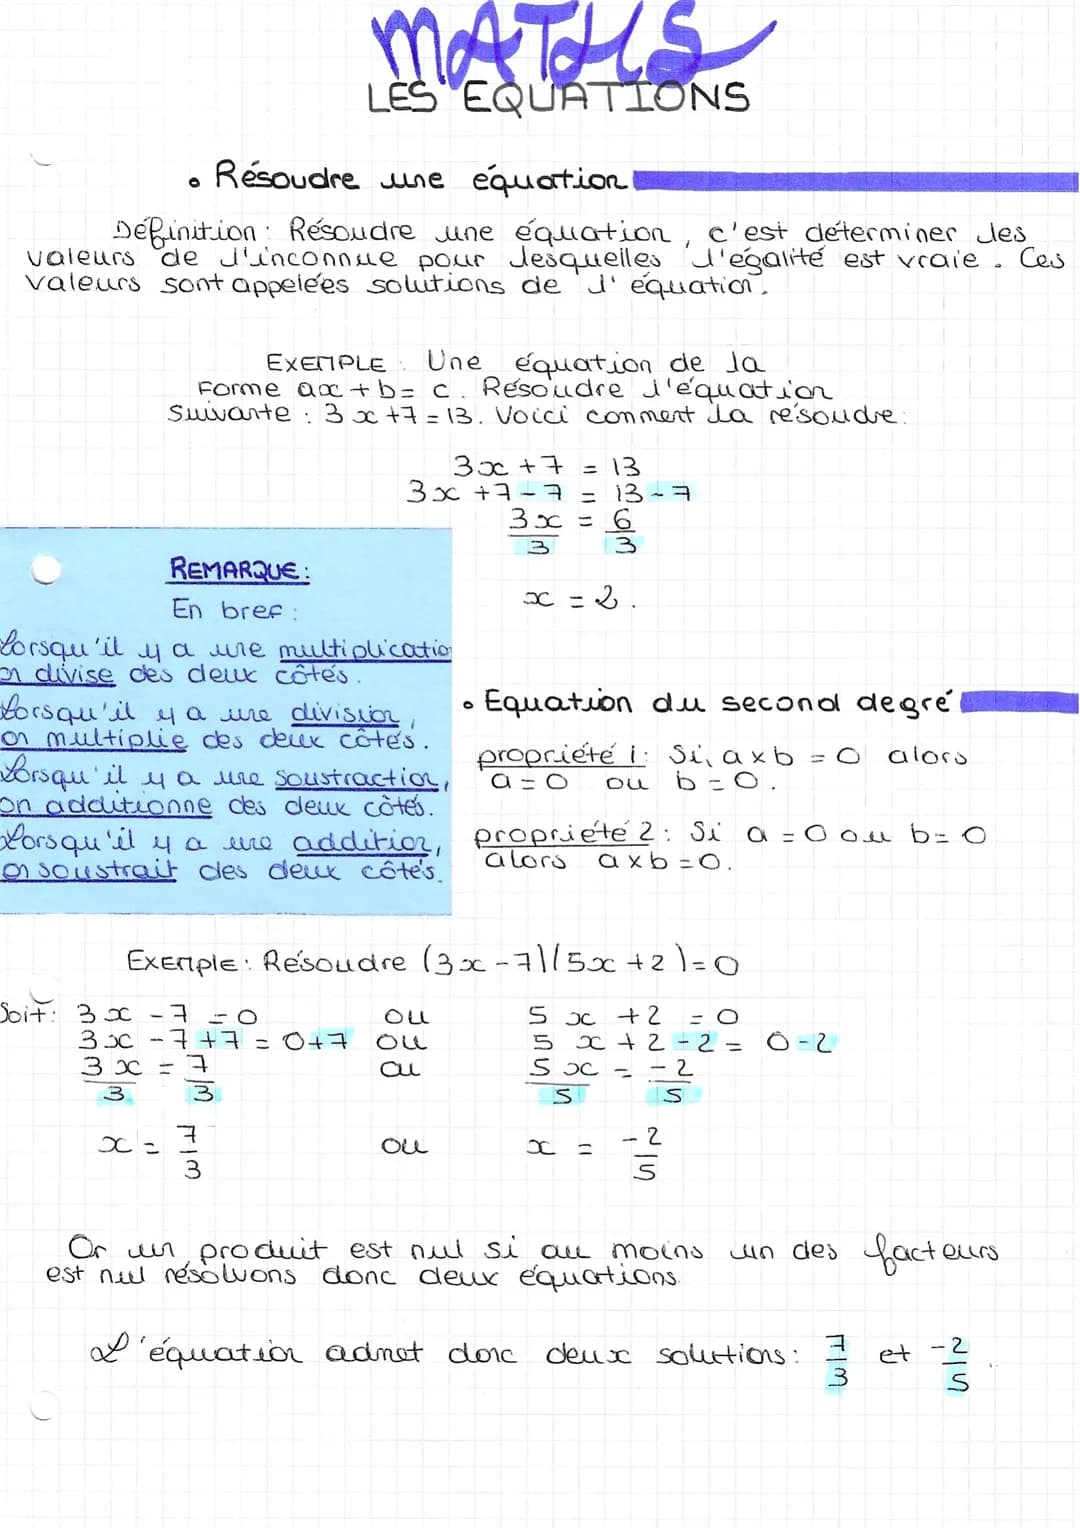 MATHS
LES EQUATIONS
• Résoudre une équation
Définition : Résoudre une équation, c'est déterminer les
valeurs de l'inconnue pour lesquelles l'égalité est vraie. Ces
valeurs sont appelées solutions de l'équation.
EXEMPLE : Une équation de la
Forme ax + b = c. Résoudre l'équation
Suivante : 3x + 7 = 13. Voici comment la résoudre :
3x + 7 = 13
3x + 7 - 7 = 13 - 7
3x/3 = 6/3
x = 2.
REMARQUE :
En bref :
Lorsqu'il y a une multiplication
on divise des deux côtés.
Lorsqu'il y a une division,
on multiplie des deux côtés.
Lorsqu'il y a une soustraction,
on additionne des deux côtés.
Lorsqu'il y a une addition,
on soustrait des deux côtés.
• Equation du second degré
propriété 1 : Si, a x b = 0 alors
a = 0 ou b = 0.
propriété 2 : Si a = 0 ou b = 0
alors a x b = 0.
Exemple : Résoudre (3x - 7)(5x + 2) = 0
Soit : 3x - 7 = 0 ou 5x + 2 = 0
3x - 7 + 7 = 0 + 7 ou 5x + 2 - 2 = 0 - 2
3x/3 = 7/3 ou 5x/5 = -2/5
x = 7/3 ou x = -2/5
Or un produit est nul si au moins un des facteurs
est nul résolvons donc deux équations.
L'équation admet donc deux solutions : 7/3 et -2/5.